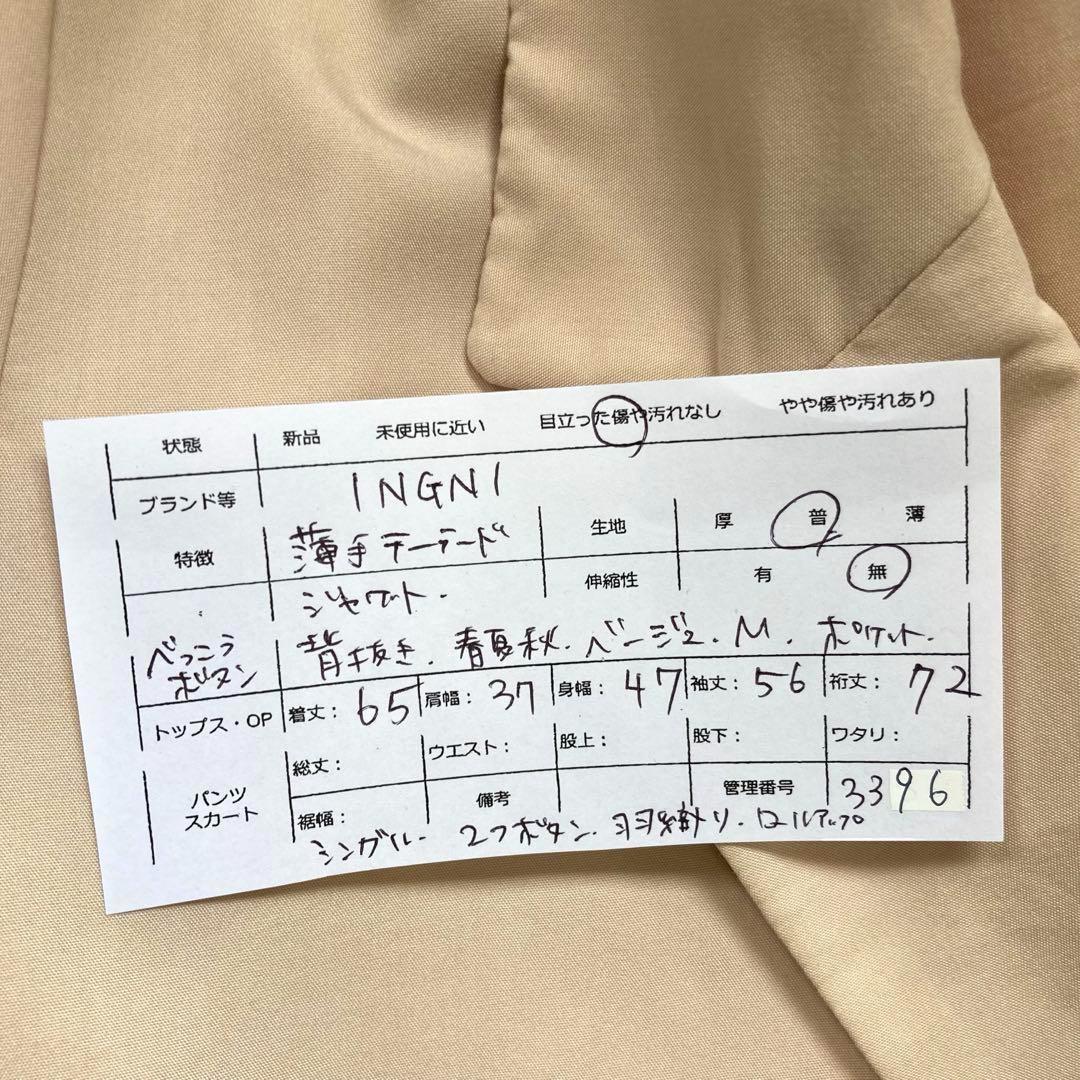 状態 新品 未使用に近い 目立った傷や汚れなし やや傷や汚れあり
ブランド等 INGNI
特徴 薄手テーラード 生地 厚 普 薄
ジャケット. 伸縮性 有 無
べっこうボタン 背抜き.春夏秋.ベージュ.M.ポケット.
トップス・OP 着丈: 65 肩幅: 37 身幅: 47 袖丈: 56 裄丈: 72
パンツ スカート 総丈: ウエスト: 股上: 股下: ワタリ:
裾幅: 備考 管理番号 3396
シングル. 2つボタン.羽織り.ロールアップ